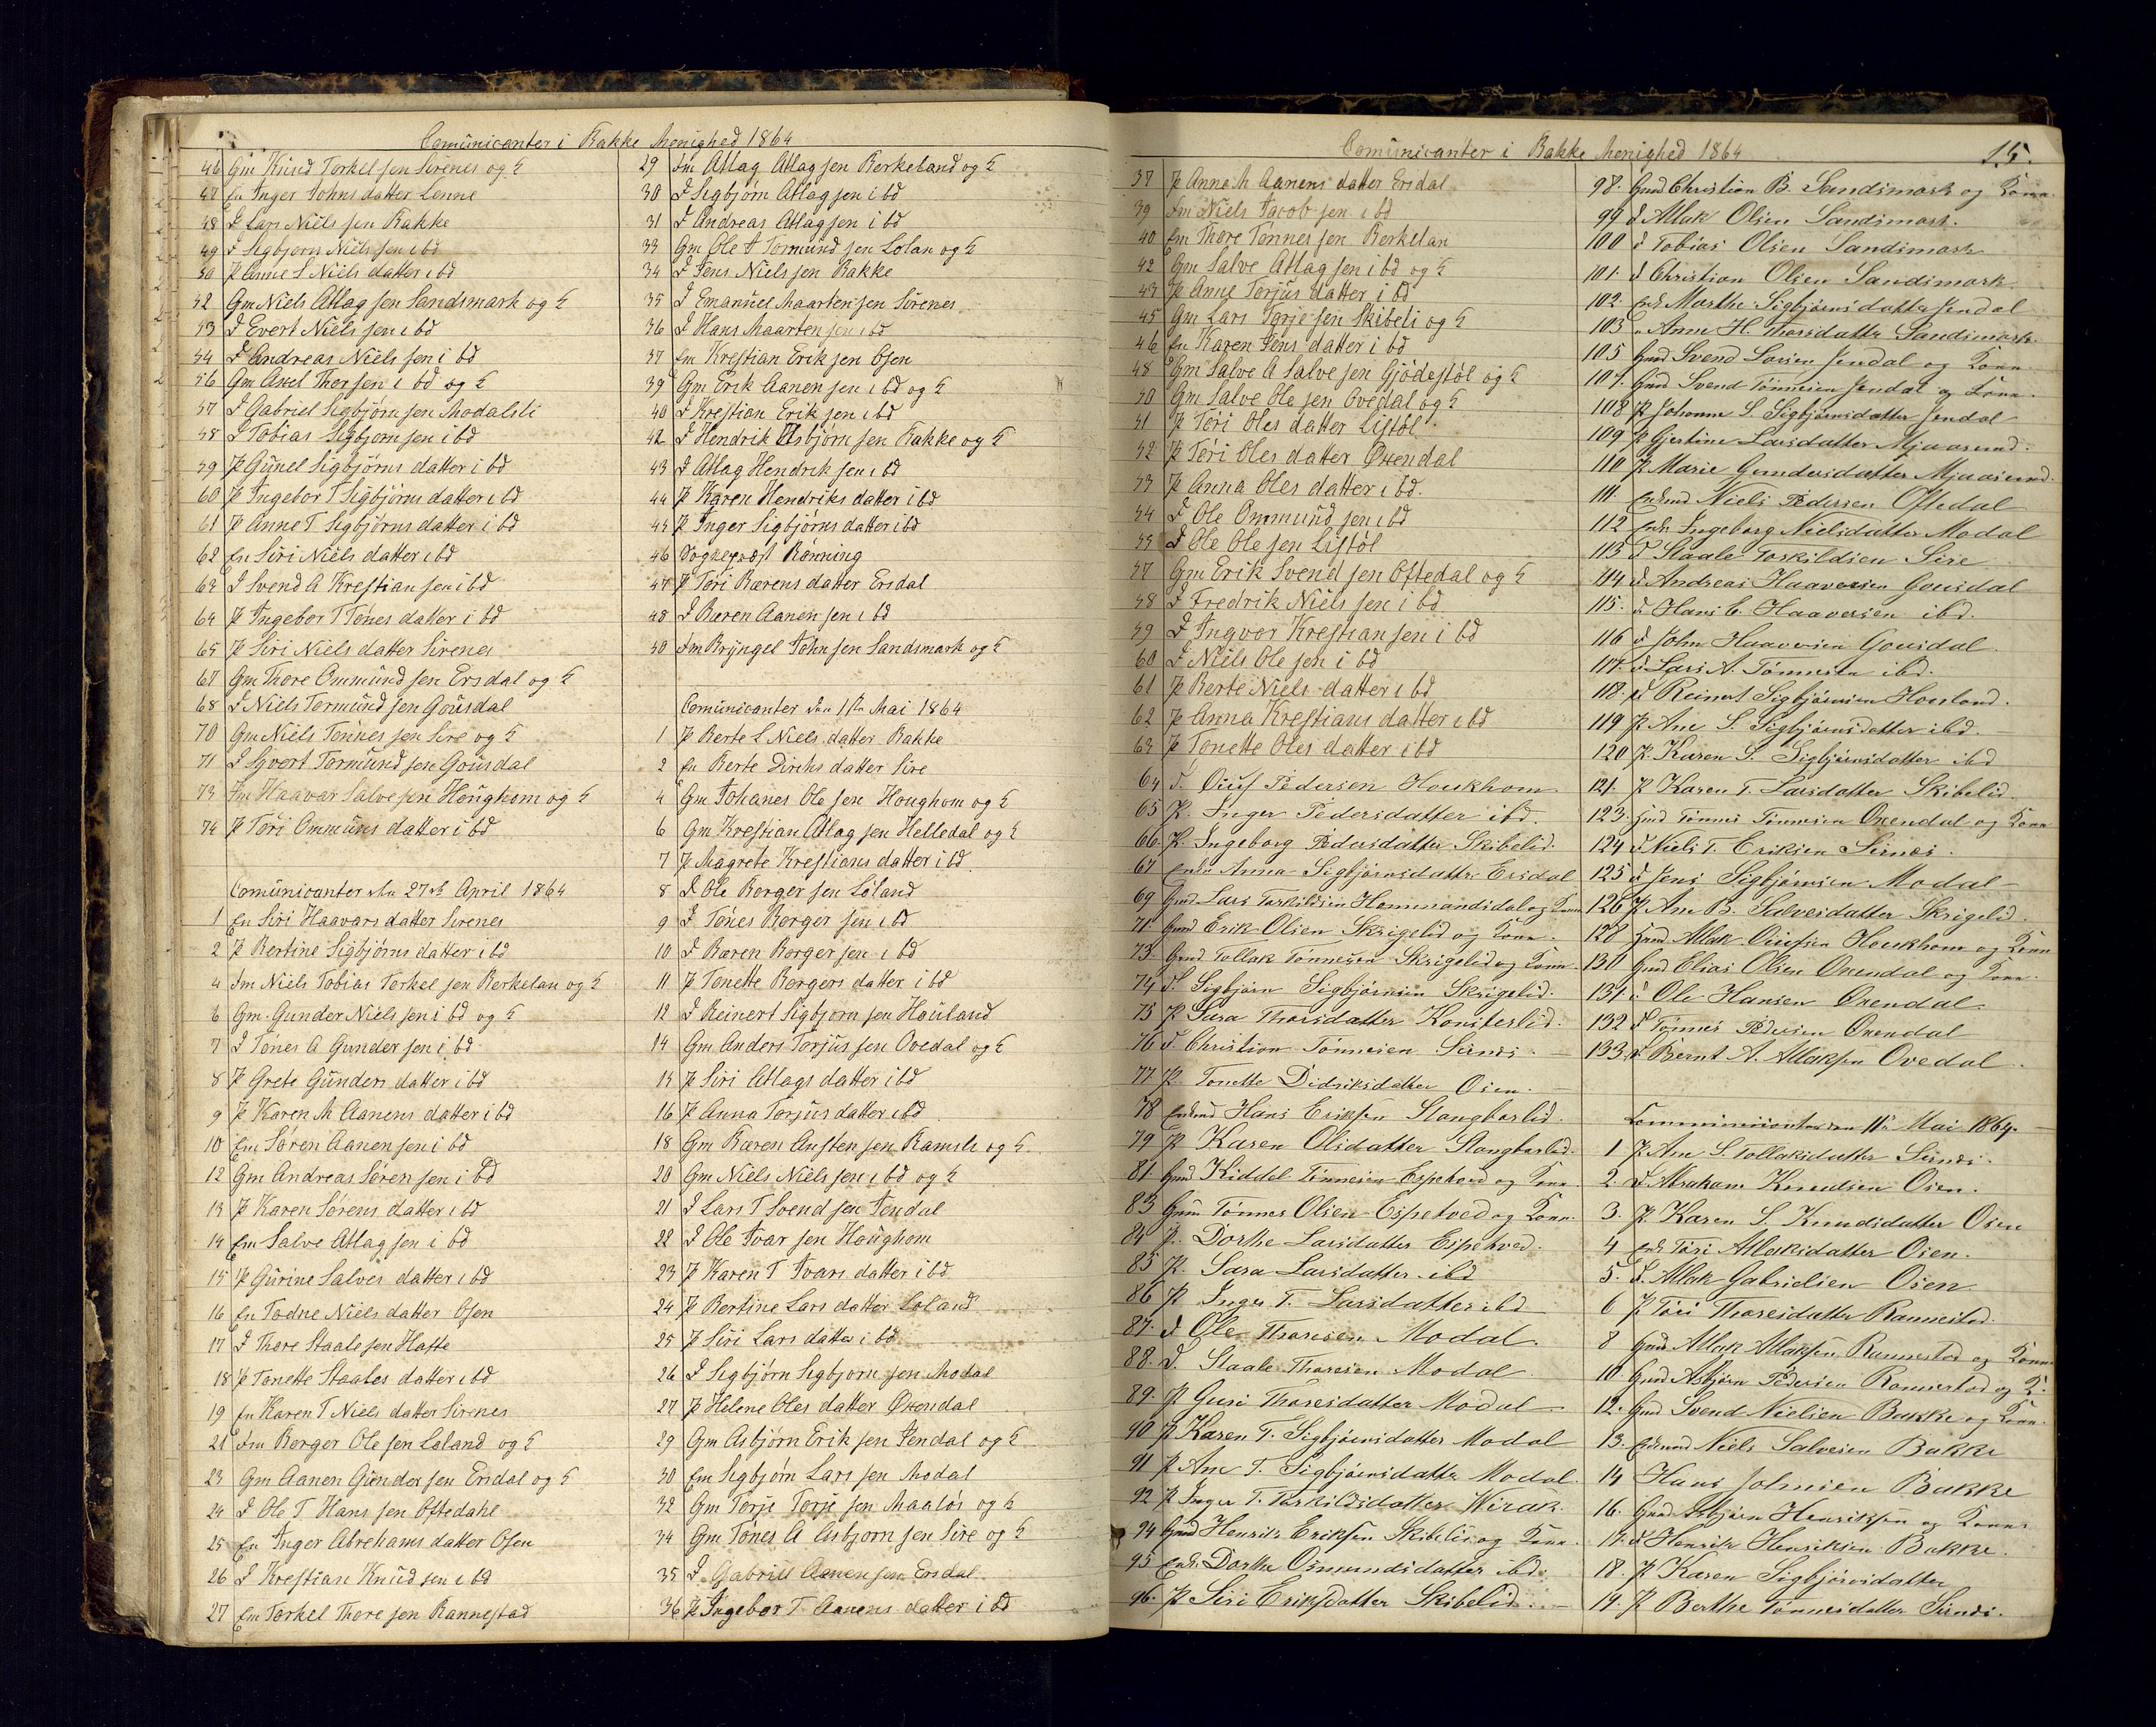 Comunicanter i Bakke Menighed 1864
46 Gm Knud Torkelsen Sirenes og K
47 En Inger Johns datter Lenne
48 D Lars Nielssen Bakke
49 D Sigbjorn Nielssen ibd
50 P Anne S Niels datter ibd
52 Gm Niels Atlagsen Sandsmark og K
53 D Evert Nielssen ibd
54 D Andreas Nielssen ibd
56 Gm Axel Thorsen ibd og K
57 D Gabriel Sigbjørnsen Modalsli
58 D Tobias Sigbjornsen ibd
59 P Gunel Sigbjørns datter ibd
60 P Ingebor T Sigbjørns datter ibd
61 P Anne T Sigbjørns datter ibd
62 En Siri Niels datter ibd
63 D Svend A Krestiansen ibd
64 P Ingebor T Tønes datter ibd
65 P Siri Niels datter Sirenes
67 Gm Thore Ommundsen Ersdal og K
68 D Niels Tormundsen Gousdal
70 Gm Niels Tønnessen Sire og K
71 D Sjvert Tormundsen Gousdal
73 Fm Haavar Salvesen Houghom og K
74 P Tøri Ommuns datter ibd
Comunicanter den 27de April 1864
1 En Siri Haavars datter Sirenes
2 P Bertine Sigbjørns datter ibd
4 Fm Niels Tobias Torkelsen Berkelan og K
6 Gm Gunder Nielssen ibd og K
7 D Tønes A Gundersen ibd
8 P Grete Gunders datter ibd
9 P Karen M Aanens datter ibd
10 Em Søren Aanensen ibd
12 Gm Andreas Sørensen ibd
13 P Karen Sørens datter ibd
14 Em Salve Atlagsen ibd
15 P Gurine Salves datter ibd
16 En Todne Niels datter Osen
17 D Thore Staalesen Hafte
18 P Tonette Staales datter ibd
19 En Karen T Niels datter Sirenes
21 Fm Borger Olesen Loland og K
23 Gm Aanen Gundersen Ersdal og K
24 D Ole T Hanssen Oftedahl
25 En Inger Abrehams datter Osen
26 D Krestian Knudsen ibd
27 Em Torkel Thoresen Rannestad
29 Fm Atlag Atlagsen Berkeland og K
30 D Sigbjørn Atlagsen ibd
31 D Andreas Atlagsen ibd
33 Gm Ole A Tormundsen Lolan og K
34 D Jens Nielssen Bakke
35 D Emanuel Maartensen Sirenes
36 D Hans Maartensen ibd
37 Em Krestian Eriksen Osen
39 Gm Erik Aanensen ibd og K
40 D Krestian Eriksen ibd
42 D Hendrik Asbjørnsen Bakke og K
43 D Atlag Hendriksen ibd
44 P Karen Hendriks datter ibd
45 P Inger Sigbjørns datter ibd
46 Sogneprest Rönning
47 P Tøri Bærens datter Ersdal
48 D Bæren Aanensen ibd
50 Fm Brÿngel Johnsen Sandsmark og K
Comunicanter den 1ste Mai 1864
1 P Berte L Niels datter Bakke
2 En Berte Dirchs datter Sire
4 Gm Johanes Olesen Houghom og K
6 Gm Krestian Atlagsen Helledal og K
7 P Magrete Krestians datter ibd
8 D Ole Borgersen Loland
9 D Tønes Borgersen ibd
10 D Bæren Borgersen ibd
11 P Tonette Borgers datter ibd
12 D Reinert Sigbjornsen Houland
14 Gm Anders Torjussen Ovedal og K
15 P Siri Atlags datter ibd
16 P Anna Torjus datter ibd
18 Gm Bæren Austensen Ramsli og K
20 Gm Niels Nielssen ibd og K
21 D Lars T Svendsen Jendal
22 D Ole Ivarsen Houghom
23 P Karen T Ivars datter ibd
24 P Bertine Lars datter Loland
25 P Siri Lars datter ibd
26 D Sigbjørn Sigbjornsen Modal
27 P Helene Oles datter Oxendal
29 Gm Asbjørn Eriksen Jendal og K
30 Em Sigbjørn Larssen Modal
32 Gm Torje Torjesen Maaløs og K
34 Gm Tønes A Asbjornsen Sire og K
35 D Gabriel Aanensen Ersdal
36 P Ingebor T Aanens datter ibd
Comunicanter i Bakke Menighed 1864
15.
37 P Anna M Aanens datter Ersdal
39 Fm Niels Jacobsen ibd
40 Em Thore Tønnessen Berkelan
42 Gm Salve Atlagsen ibd og K
43 P Anne Torjus datter ibd
45 Gm Lars Torjesen Skibeli og K
46 En Karen Jens datter ibd
48 Gm Salve A Salvesen Gjødestøl og K
50 Gm Salve Olesen Ovedal og K
51 P Tøri Oles datter Listøl
52 P Tøri Oles datter Oxendal
53 P Anna Oles datter ibd.
54 D Ole Ommundsen ibd
55 D Ole Olesen Listøl
57 Gm Erik Svendsen Oftedal og K
58 D Fredrik Nielssen ibd
59 D Ingvor Krestiansen ibd
60 D Niels Olesen ibd
61 P Berte Niels datter ibd
62 P Anna Krestians datter ibd
63 P Tonette Oles datter ibd
64 D. Oiuf Pedersen Houkhom
65 P. Inger Pedersdatter ibd.
66 P. Ingeborg Pedersdatter Skibelid.
67 Enke Anna Sigbjørnsdatter Ersdal
69 Gmd Lars Torkildsen Hommandsdal og Kone
71 Gmd Erik Olsen Skrigelid og Kone.
73. Gmd Tollak Tønnesen Skrigelid og Kone
74 D Sigbjørn Sigbjørnsen Skrigelid.
75 P Sara Thorsdatter Konsteslid.
76 D Christian Tønnesen Sirnes.
77 P. Tonette Didriksdatter Osen.
78 Enkmd Hans Eriksen Stangborlid.
79 P Karen Olsdatter Stangborlid.
81 Gmd Kiddel Tønnesen Espetved og Kone
83 Gmd Tønnes Olsen Espetved og Kone.
84 P. Dorthe Larsdatter Espetved.
85 P. Sara Larsdatter ibd
86 P Inger T. Larsdatter ibd
87. D Ole Thoresen Modal.
88. D. Staale Thoresen Modal
89. P Guri Thoresdatter Modal
90 P Karen T. Sigbjørnsdatter Modal
91 P Ane T. Sigbjørnsdatter Modal.
92 P Inger T. Torkildsdatter Wirak.
94 Gmd Henrik Eriksen Skibelid og Kone.
95 Enk. Dorthe Osmundsdatter ibd.
96. P Siri Eriksdatter Skibelid.
98. Gmd Christian B. Sandsmark og Kone.
99 D Atlak Olsen Sandsmark.
100 D Tobias Olsen Sandsmark
101. D Christian Olsen Sandsmark
102. Enk Marthe Sigbjørnsdatter Jendal
103 " Anne H. Thorsdatter Sandsmark.
105 Gmd Svend Larsen Jendal og Kone
107. Gmd Svend Tønnesen Jendal og Kone.
108 P Johanne S. Sigbjørnsdatter Jendal
109 P Gjertine Larsdatter Mjaasund.
110 P Marie Gundersdatter Mjaasund.
111. Enkmd Niels Pedersen Oftedal
112 Enk. Ingeborg Nielsdatter Modal
113 D Staale Torkildsen Sire
114 D Andreas Haaversen Gousdal
115. D Hans E. Haaversen ibd.
116 D John Haaversen Gousdal.
117. D Lars A. Tønnesen ibd.
118. D Reinert Sigbjørnsen Houland.
119 P Ane S. Sigbjørnsdatter ibd.
120 P. Karen S. Sigbjørnsdatter ibd
121. P Karen T. Larsdatter Skibelid.
123. Gmd Tønnes Tønnesen Oxendal og Kone
124 D Niels T. Eriksen Sirnes.
125 D Jens Sigbjørnsen Modal
126 P Ane B. Salvesdatter Skrigelid.
128 Gmd Atlak Oiufsen Houkhom og Kone
130 Gmd Elias Olsen Oxendal og Kone.
131 D Ole Hansen Oxendal.
132 D Tønnes Pedersen Oxendal
133 D Bernt A. Atlaksen Ovedal.
Communicanter den 11te Mai 1864.
1 P Ane S. Tollaksdatter Sirnes.
2. D Abraham Knudsen Osen.
3. P Karen S. Knudsdatter Osen
4 Enk Tøri Atlaksdatter Osen.
5. D. Atlak Gabrielsen Osen
6 P Tøri Thoresdatter Rannestad.
8 Gmd Atlak Atlaksen Rannestad og Kone
10. Gmd Asbjørn Pedersen Rannestad og K.
12. Gmd Svend Nielsen Bakke og Kone.
13. Enkmd Niels Salvesen Bakke
14 Hans Johnsen Bakke
16. Gmd Asbjørn Henriksen og Kone
17. D Henrik Henriksen Bakke.
18. P Karen Sigbjørnsdatter
19. P Berthe Tønnesdatter Sirnes.